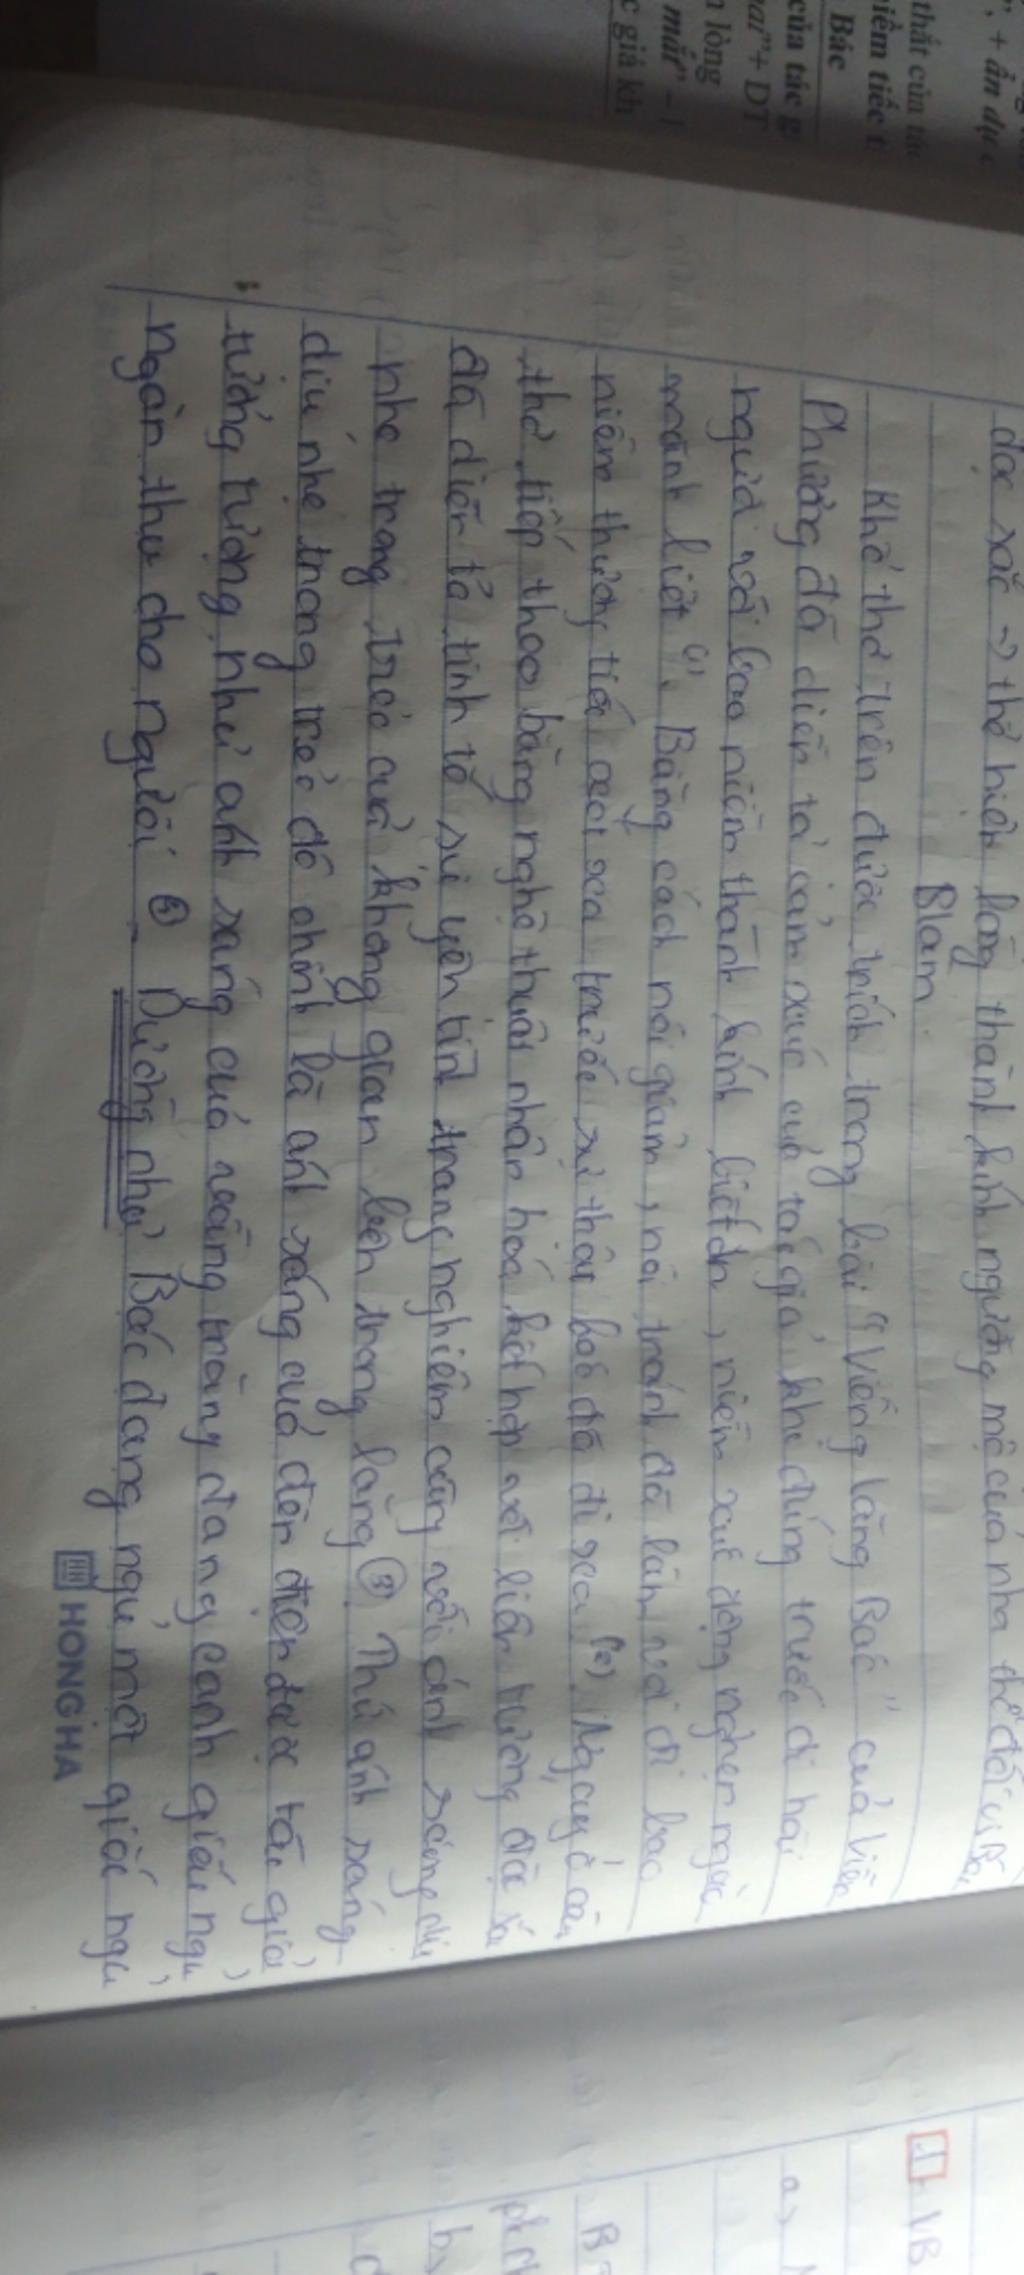 , + ẩn dụ c
thất của tác
niềm tiếc t
Bác
của tác g
nai" + DT
n lòng
mắt" - l
c giả kh
đặc sắc -> thể hiện lòng thành kính ngưỡng mộ của nhà thơ đối với Bác
Blàm
Khổ thơ trên được trích trong bài "Viếng lăng Bác" của Viễn
Phương đã diễn tả cảm xúc của tác giả khi đứng trước di hài
người với bao niềm thành kính biết ơn, niềm xúc động nghẹn ngào
mãnh liệt (1). Bằng cách nói giảm, nói tránh đã làm vơi đi bao
niềm thương tiếc xót xa trước sự thật Bác đã đi xa (2). Ngay ở câu
thơ tiếp theo bằng nghệ thuật nhân hóa kết hợp với liên tưởng đặc sắc
đã diễn tả tinh tế sự yên tĩnh trang nghiêm cùng với ánh sáng dịu
nhẹ trong trẻo của không gian bên trong lăng (3). Thứ ánh sáng
dịu nhẹ trong trẻo đó chính là ánh sáng của đèn điện được tác giả
tưởng tượng như ánh sáng của vầng trăng đang canh giấc ngủ
ngàn thu cho Người (4). Dường như Bác đang ngủ một giấc ngủ
HONG HA
1 VB
a,
B
b,